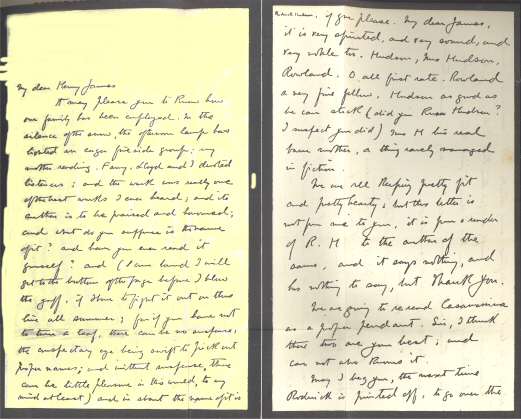 My dear Henry James
It may please you to know how
our family has been employed. In the
silence of the snow, the afternoon lamp has
lighted an eager fireside group: my
mother reading. Fanny, Lloyd and I devoted
listeners; and the work was really one
of the best works I ever heard; and its
author is to be praised and honoured;
and what do you suppose is the name
of it? and have you ever read it
yourself? and (I am bound I will
get to the bottom of the page before I blow
the gaff, if I have to fight it out on this
line all summer; for if you have not
to turn a leaf, there can be no suspense,
the conspectory eye being swift to pick out
proper names; and without suspense, there
can be little pleasure in this world, to my
mind at least) and in short the name of it is
Roderick Hudson, if you please. My dear James,
it is very spirited, and very sound, and
very noble too. Hudson, Mrs Hudson,
Rowland, O, all first rate. Rowland
a very fine fellow, Hudson as good as
he can stick (did you know Hudson?
I suspect you did) Mrs H his real
born mother, a thing rarely managed
in fiction.
We are all keeping pretty fit
and pretty hearty; but this letter is
not from me to you, it is from a reader
of R. H. to the author of the
same, and it says nothing, and
has nothing to say, but Thank You.
We are going to re-read Casamassima
as a proper pendant. Sir, I think
these two are your best; and
care not who knows it.
May I beg you, the next time
Roderick is printed off, to go over the